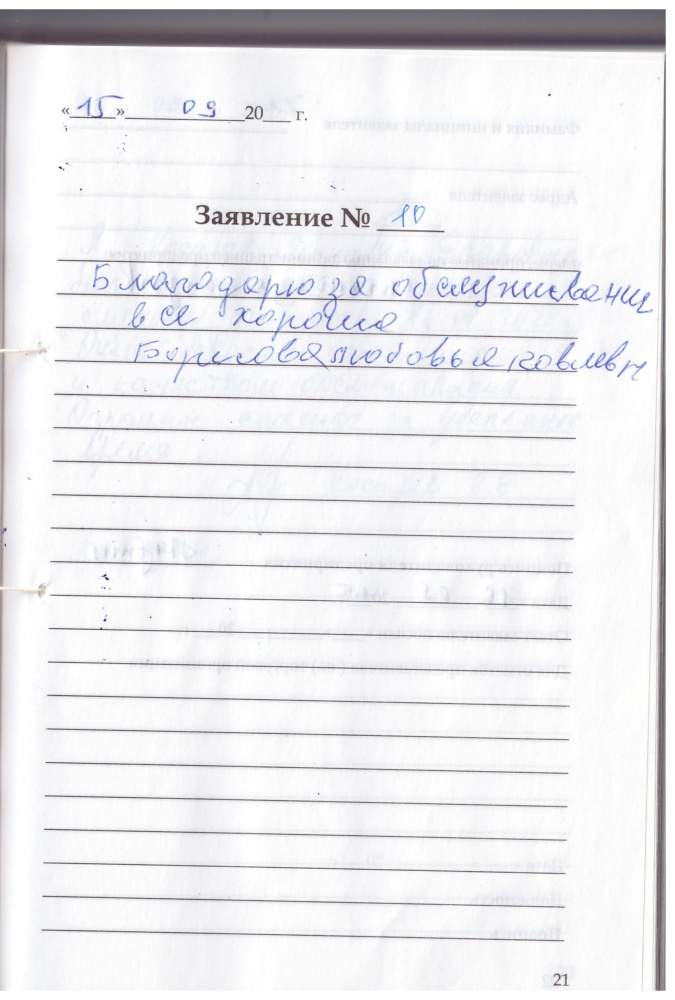 «15» 09 20 г.
Заявление № 10
Благодарю за обслуживании
все хороша
Борисова любовья ковлевн
21